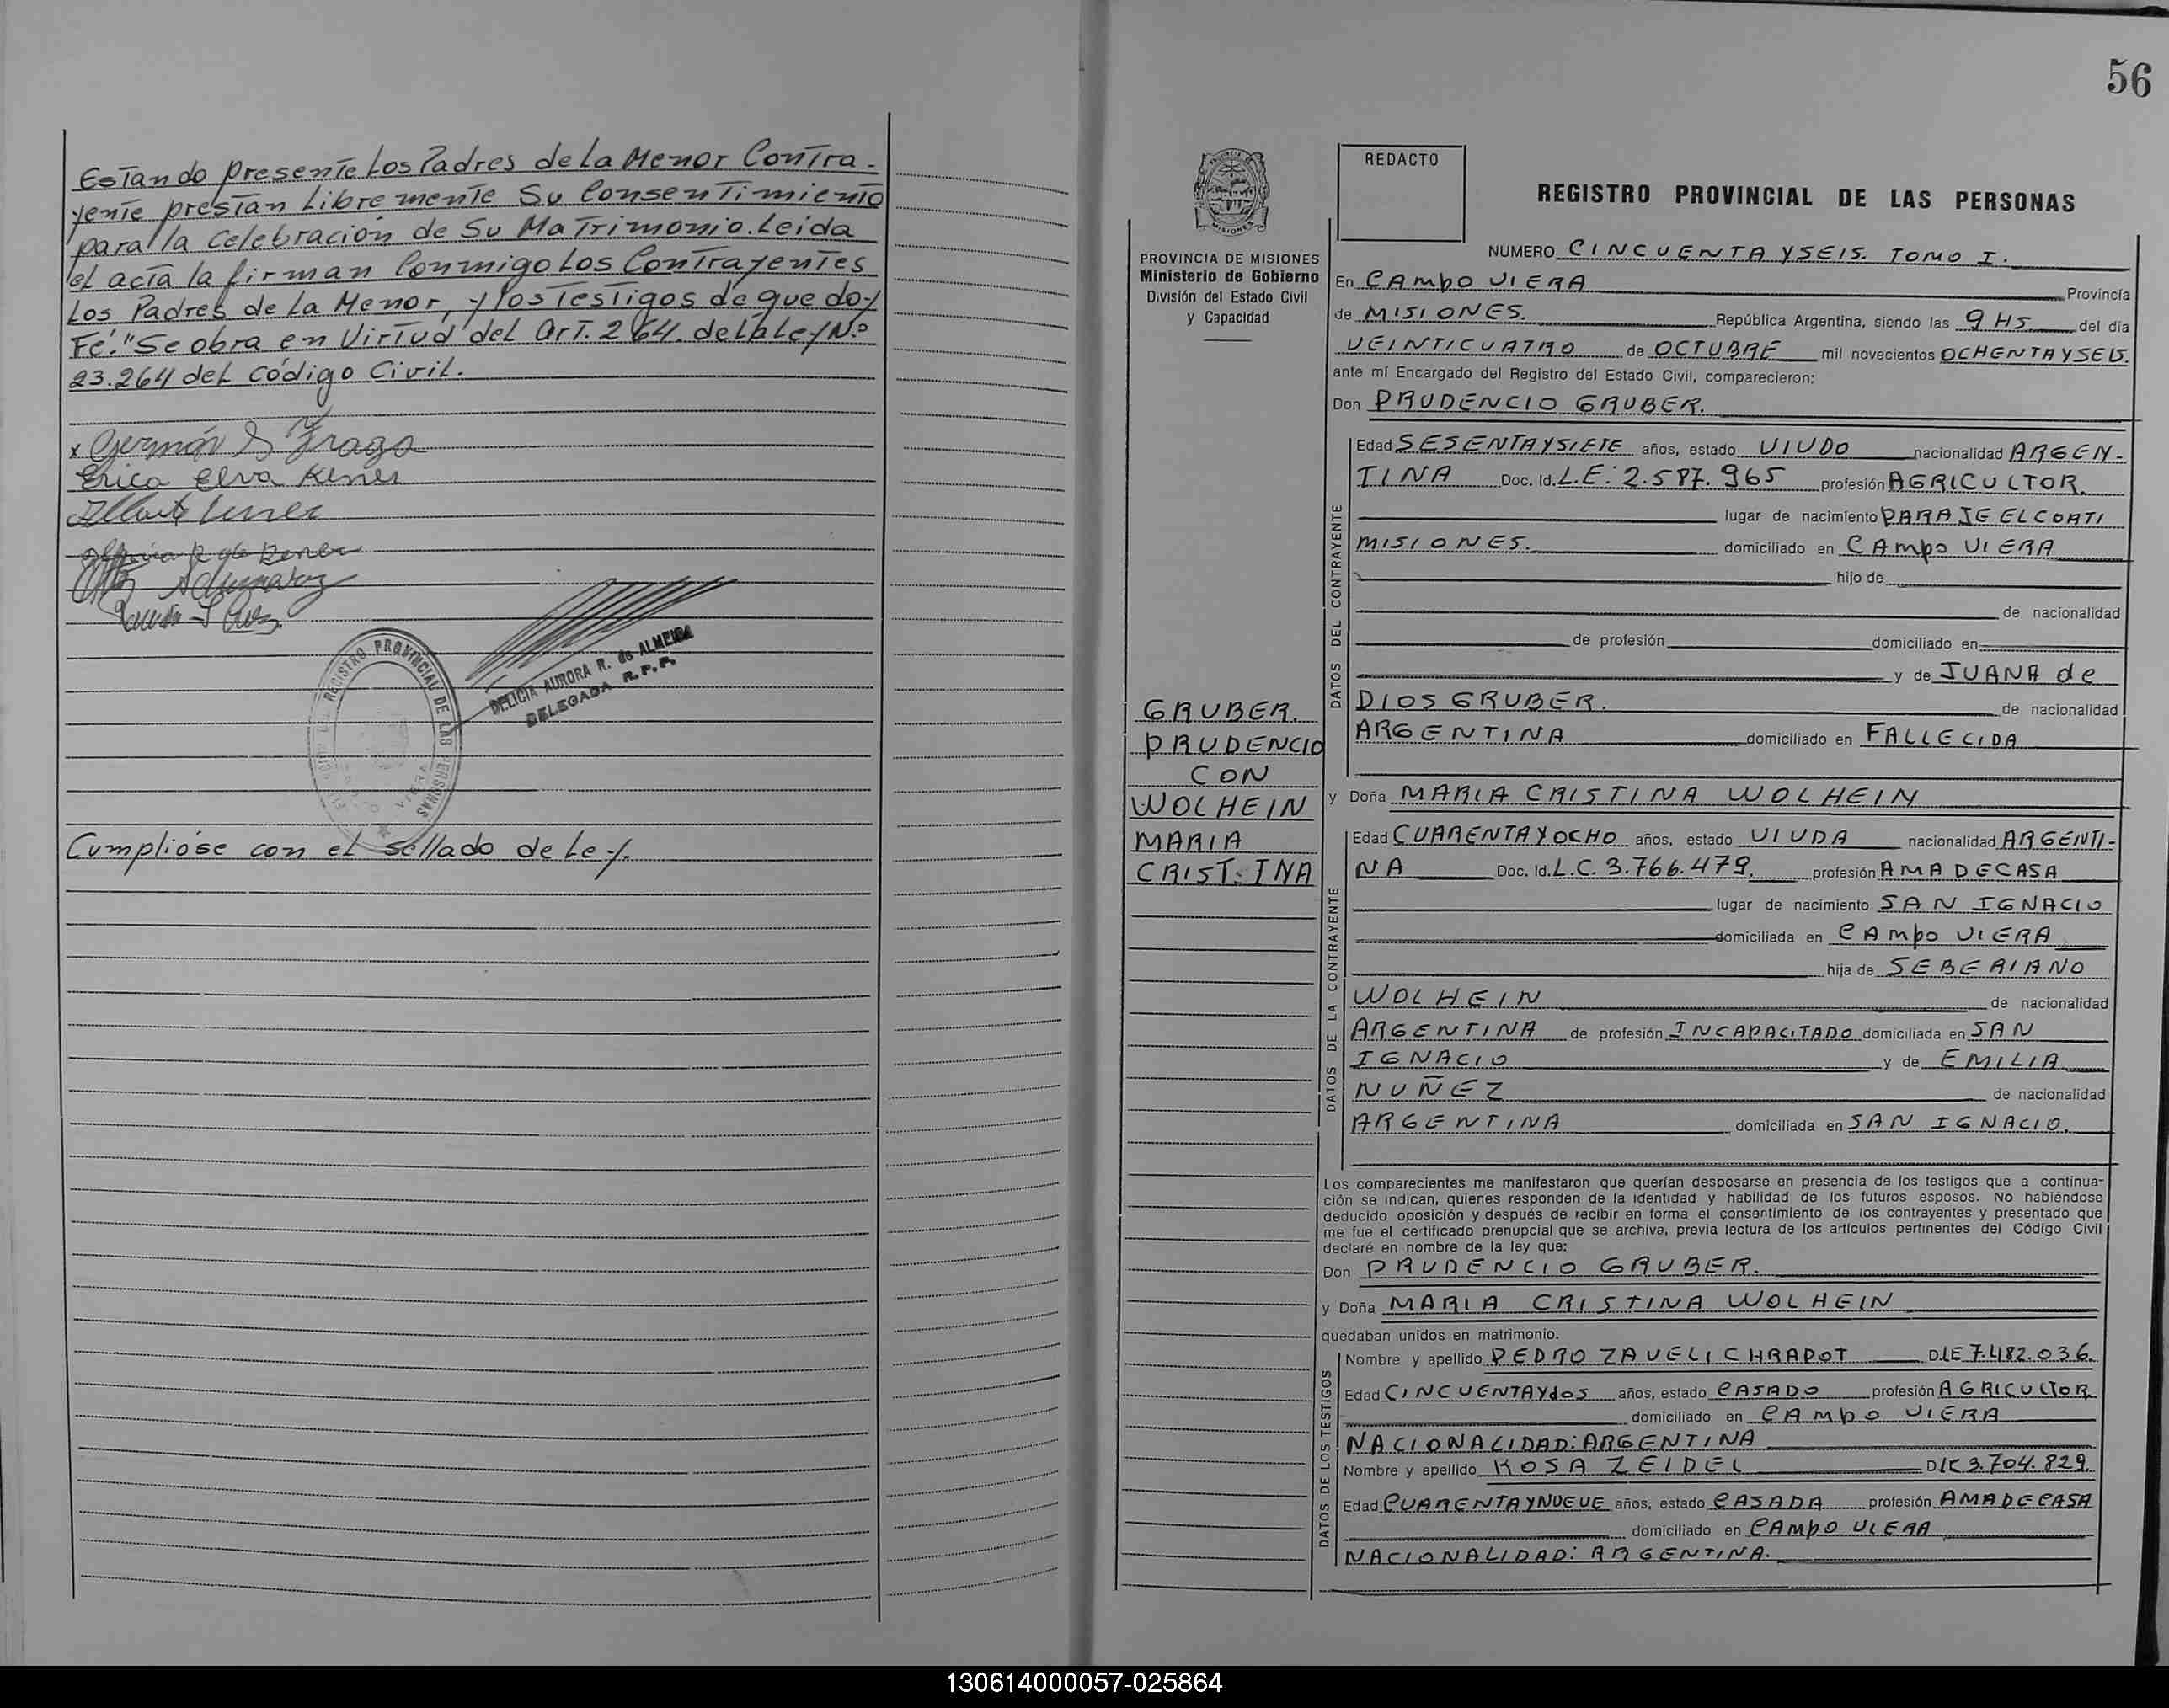 Estando presente Los Padres de La Menor Contra-
yente prestan Libremente Su Consentimiento
para la Celebración de Su Matrimonio. Leida
el acta la firman Conmigo Los Contrayentes
Los Padres de La Menor, y los Testigos de que doy
Fé: "Se obra en Virtud del Art. 264. de La Ley N.º
23.264 del Código Civil.
x Germán S Fraga
Erica Elva Kener
DELICIA AURORA R. de ALMEIDA
DELEGADA R.P.P.
REGISTRO PROVINCIAL DE LAS PERSONAS
VIERA
Cumplióse con el Sellado de Ley.
56
REDACTO
REGISTRO PROVINCIAL DE LAS PERSONAS
PROVINCIA DE MISIONES
Ministerio de Gobierno
División del Estado Civil
y Capacidad
NUMERO CINCUENTA Y SEIS. TOMO I.
En CAMPO VIERA Provincia
de MISIONES. República Argentina, siendo las 9 HS del día
VEINTICUATRO de OCTUBRE mil novecientos OCHENTA Y SEIS.
ante mí Encargado del Registro del Estado Civil, comparecieron:
Don PRUDENCIO GRUBER.
GRUBER.
PRUDENCIO
CON
WOLHEIN
MARIA
CRISTINA
DATOS DEL CONTRAYENTE
Edad SESENTA Y SIETE años, estado VIUDO nacionalidad ARGEN-
TINA Doc. Id. L.E: 2.587.965 profesión AGRICULTOR.
lugar de nacimiento PARAJE EL COATI
MISIONES. domiciliado en CAMPO VIERA
hijo de
de nacionalidad
de profesión domiciliado en
y de JUANA de
DIOS GRUBER. de nacionalidad
ARGENTINA domiciliado en FALLECIDA
y Doña MARIA CRISTINA WOLHEIN
DATOS DE LA CONTRAYENTE
Edad CUARENTA Y OCHO años, estado VIUDA nacionalidad ARGENTI-
NA Doc. Id. L.C. 3.766.479. profesión AMA DE CASA
lugar de nacimiento SAN IGNACIO
domiciliada en CAMPO VIERA
hija de SEBERIANO
WOLHEIN de nacionalidad
ARGENTINA de profesión INCAPACITADO domiciliada en SAN
IGNACIO y de EMILIA
NUÑEZ de nacionalidad
ARGENTINA domiciliada en SAN IGNACIO.
Los comparecientes me manifestaron que querían desposarse en presencia de los testigos que a continua-
ción se indican, quienes responden de la identidad y habilidad de los futuros esposos. No habiéndose
deducido oposición y después de recibir en forma el consentimiento de los contrayentes y presentado que
me fue el certificado prenupcial que se archiva, previa lectura de los artículos pertinentes del Código Civil
declaré en nombre de la ley que:
Don PRUDENCIO GRUBER.
y Doña MARIA CRISTINA WOLHEIN
quedaban unidos en matrimonio.
DATOS DE LOS TESTIGOS
Nombre y apellido PEDRO ZAVELICHRAPOT D.I.E 7.482.036.
Edad CINCUENTA Y dos años, estado CASADO profesión AGRICULTOR
domiciliado en CAMPO VIERA
NACIONALIDAD: ARGENTINA
Nombre y apellido ROSA ZEIDEL D.I.C 3.704.829.
Edad CUARENTA Y NUEVE años, estado CASADA profesión AMA DE CASA
domiciliado en CAMPO VIERA
NACIONALIDAD: ARGENTINA.
130614000057-025864